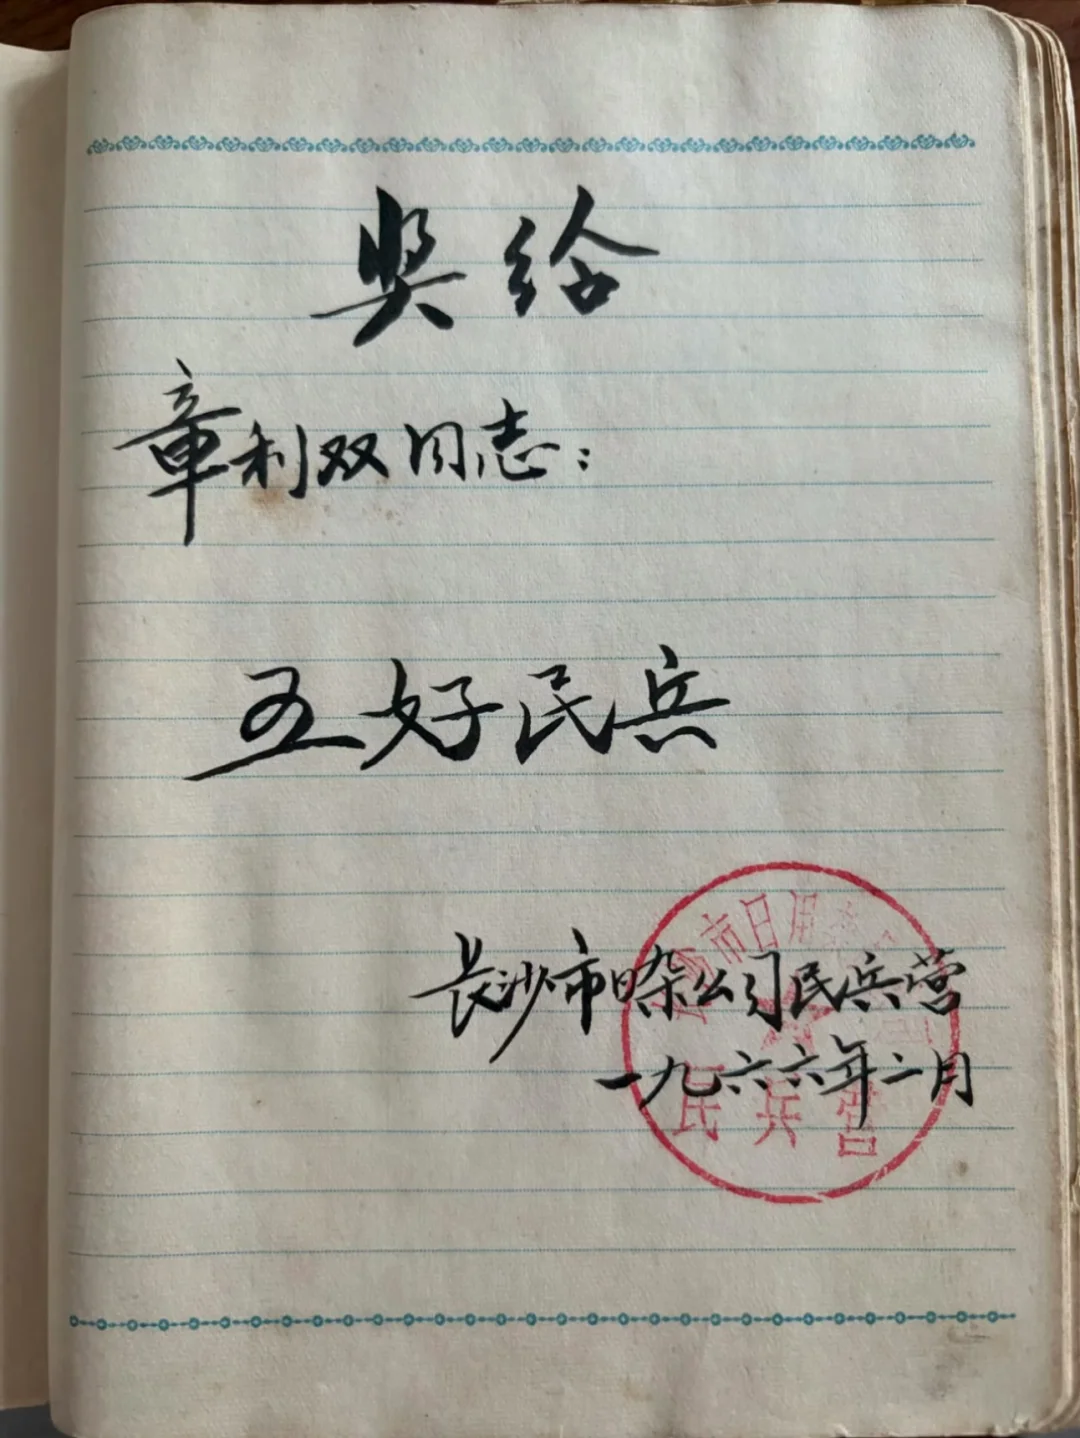 奖给
章利双同志：
五好民兵
长沙市日杂公司民兵营
一九六六年二月
市日用杂
民兵营